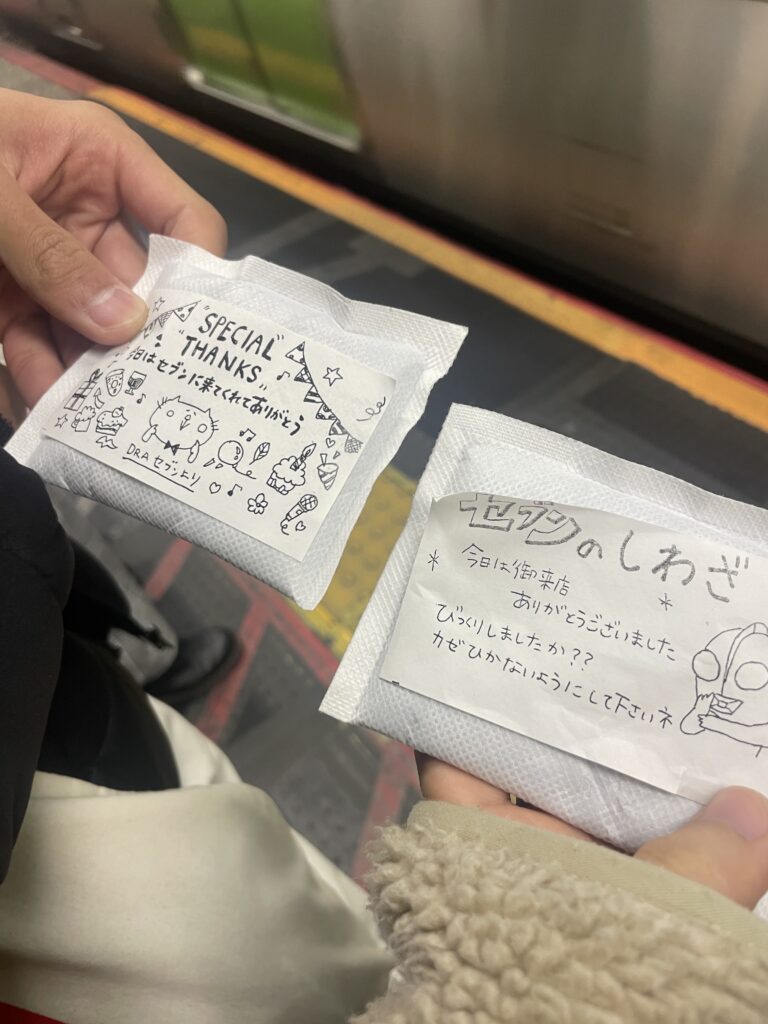 "SPECIAL"
"THANKS"
今日はセブンに来てくれてありがとう
DRAセブンより
セブンのしわざ
今日は御来店
ありがとうございました
びっくりしましたか??
カゼひかないようにして下さいネ